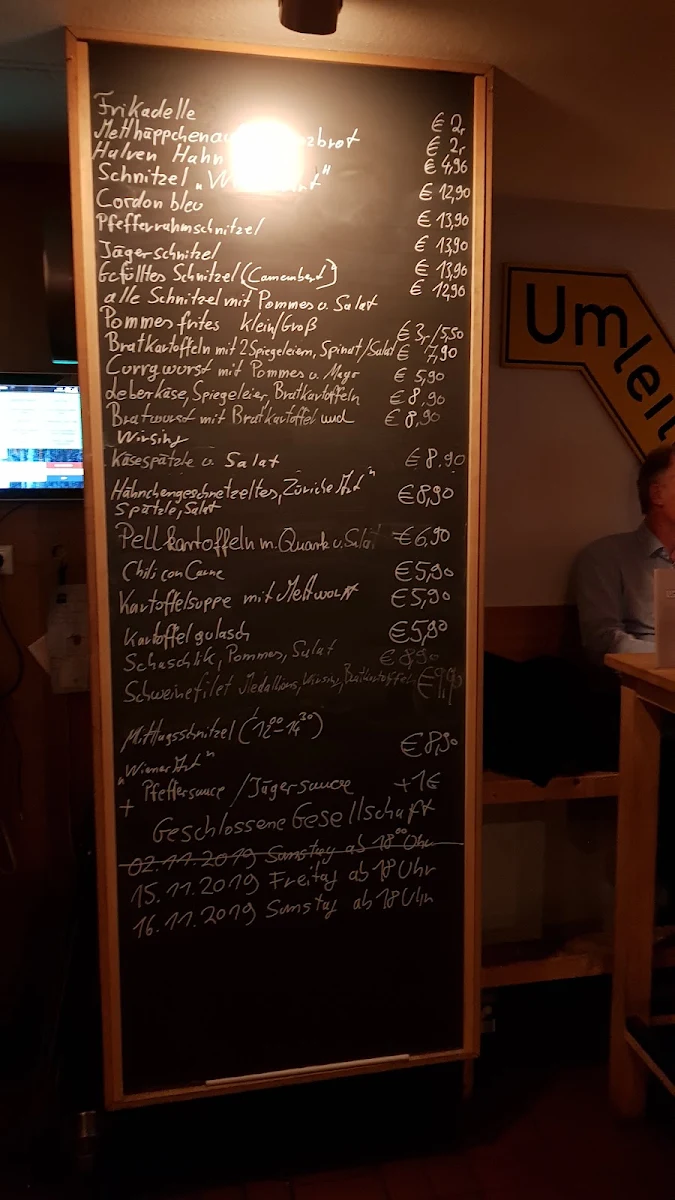 Frikadelle € 2,
Metthäppchen € 2,
Halven Hahn € 4,90
Schnitzel € 12,90
Cordon bleu € 13,90
Pfefferrahmschnitzel € 13,90
Jägerschnitzel € 13,90
Gefülltes Schnitzel (Camembert) € 12,90
alle Schnitzel mit Pommes u. Salat
Pommes frites klein/Groß € 3,/5,50
Bratkartoffeln mit 2 Spiegeleiern, Spinat/Salat € 7,90
Currywurst mit Pommes u. Mayo € 5,90
Leberkäse, Spiegeleier, Bratkartoffeln € 8,90
Bratwurst mit Bratkartoffel und € 8,90
Wirsing
Käsespätzle u. Salat € 8,90
Hähnchengeschnetzeltes, Züricher Art" € 8,90
Spätzle, Salat
Pellkartoffeln m. Quark u. Salat € 6,90
Chili con Carne € 5,90
Kartoffelsuppe mit Mettwurst € 5,90
Kartoffelgulasch € 5,90
Schaschlik, Pommes, Salat € 8,90
Schweinefilet Medallions, Wirsing, Bratkartoffel € 9,90
Mittagsschnitzel (12⁰⁰-14³⁰) € 8,90
"Wiener Art"
+ Pfeffersauce / Jägersauce +1€
Geschlossene Gesellschaft
02.11.2019 Samstag ab 18⁰⁰ Uhr
15.11.2019 Freitag ab 18 Uhr
16.11.2019 Samstag ab 18 Uhr
Umleit